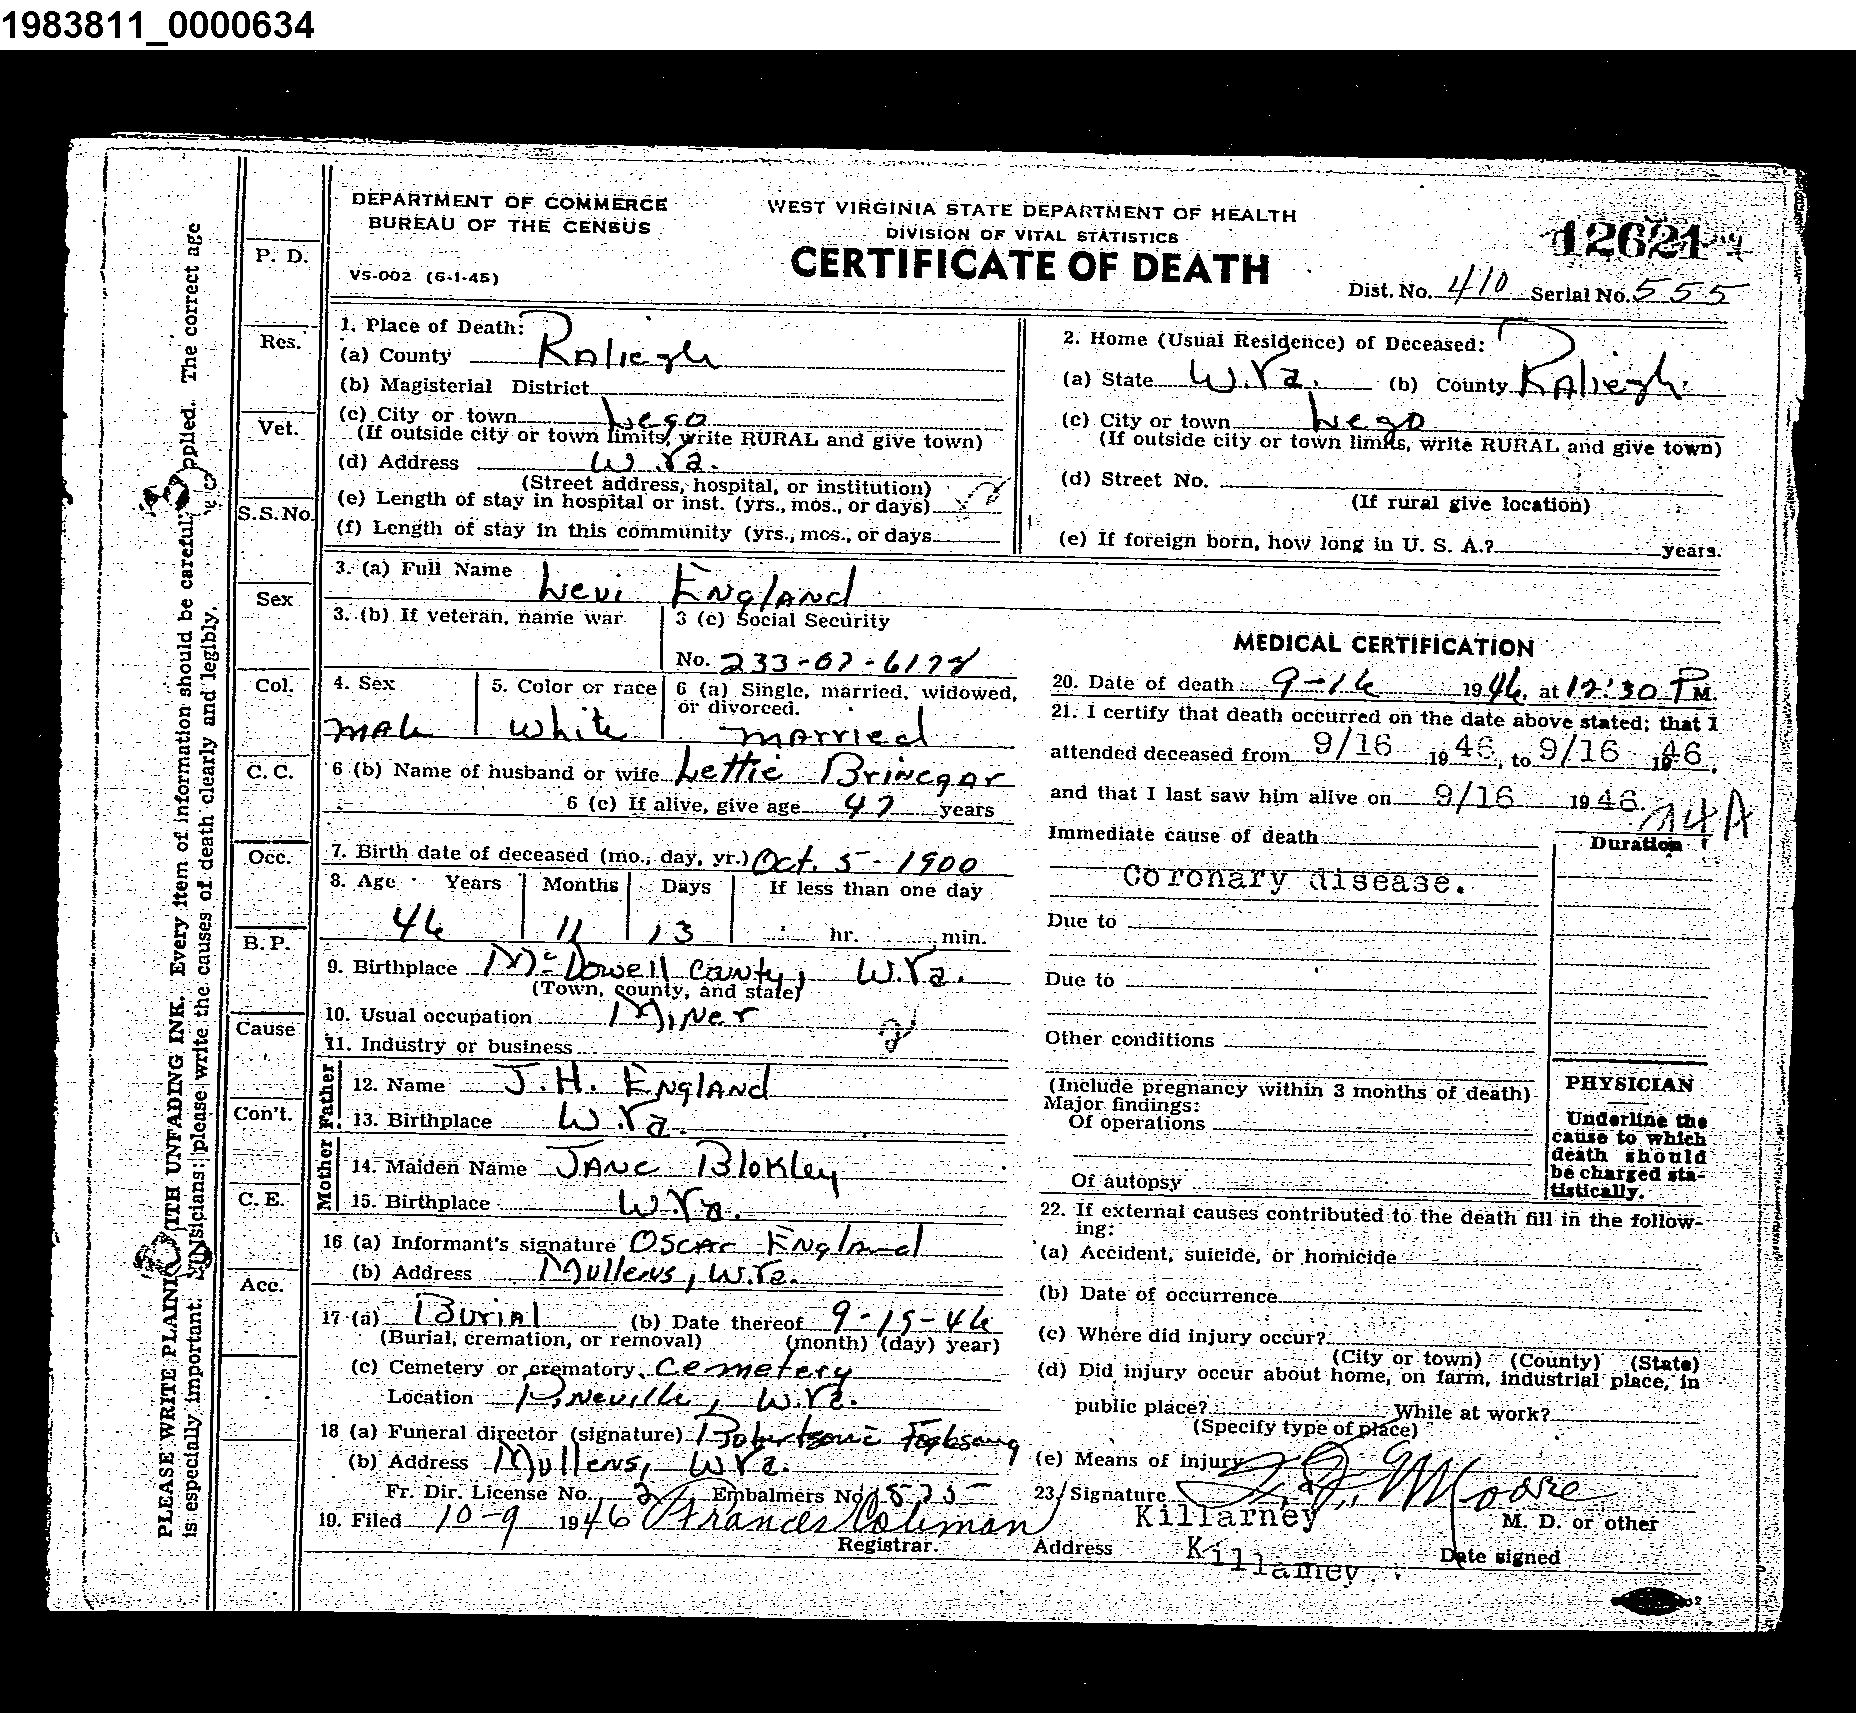 1983811_0000634
DEPARTMENT OF COMMERCE
BUREAU OF THE CENSUS
VS-002 (6-1-45)
WEST VIRGINIA STATE DEPARTMENT OF HEALTH
DIVISION OF VITAL STATISTICS
CERTIFICATE OF DEATH
12621
Dist. No. 410 Serial No. 555
PLEASE WRITE PLAINLY WITH UNFADING INK. Every item of information should be carefully supplied. The correct age
is especially important. Physicians: please write the causes of death clearly and legibly.
P. D.
Res.
Vet.
S.S.No.
Sex
Col.
C. C.
Occ.
B.P.
Cause
Con't.
C. E.
Acc.
1. Place of Death:
(a) County Raliegh
(b) Magisterial District
(c) City or town Lego
(If outside city or town limits, write RURAL and give town)
(d) Address W.Va.
(Street address, hospital, or institution)
(e) Length of stay in hospital or inst. (yrs., mos., or days)
(f) Length of stay in this community (yrs., mos., or days
2. Home (Usual Residence) of Deceased:
(a) State W.Va. (b) County Raliegh
(c) City or town Lego
(If outside city or town limits, write RURAL and give town)
(d) Street No.
(If rural give location)
(e) If foreign born, how long in U. S. A.? years.
3. (a) Full Name Levi England
3. (b) If veteran, name war
3 (c) Social Security
No. 233-07-6178
4. Sex
male
5. Color or race
White
6 (a) Single, married, widowed,
or divorced.
married
6 (b) Name of husband or wife Lettie Brinegar
6 (c) If alive, give age 47 years
7. Birth date of deceased (mo., day, yr.) Oct. 5 - 1900
8. Age Years Months Days If less than one day
46 11 13 hr. min.
9. Birthplace McDowell County, W.Va.
(Town, county, and state)
10. Usual occupation Miner
11. Industry or business
Father
12. Name J.H. England
13. Birthplace W.Va.
Mother
14. Maiden Name Jane Blokley
15. Birthplace W.Va.
16 (a) Informant's signature Oscar England
(b) Address Mullens, W.Va.
17 (a) Burial (b) Date thereof 9-19-46
(Burial, cremation, or removal) (month) (day) year)
(c) Cemetery or crematory Cemetery
Location Pineville, W.Va.
18 (a) Funeral director (signature)
(b) Address Mullens, W.Va.
Fr. Dir. License No. Embalmers No.
19. Filed 10-9 1946 Frances Coleman
Registrar.
MEDICAL CERTIFICATION
20. Date of death 9-16 1946, at 12:30 P M.
21. I certify that death occurred on the date above stated; that I
attended deceased from 9/16 1946, to 9/16 1946.
and that I last saw him alive on 9/16 1946.
94A
Immediate cause of death
Duration
Coronary disease.
Due to
Due to
Other conditions
(Include pregnancy within 3 months of death)
Major findings:
Of operations
Of autopsy
PHYSICIAN
Underline the
cause to which
death should
be charged sta-
tistically.
22. If external causes contributed to the death fill in the follow-
ing:
(a) Accident, suicide, or homicide
(b) Date of occurrence
(c) Where did injury occur?
(City or town) (County) (State)
(d) Did injury occur about home, on farm, industrial place, in
public place? While at work?
(Specify type of place)
(e) Means of injury
23. Signature Moore
Killarney M. D. or other
Address Killarney Date signed